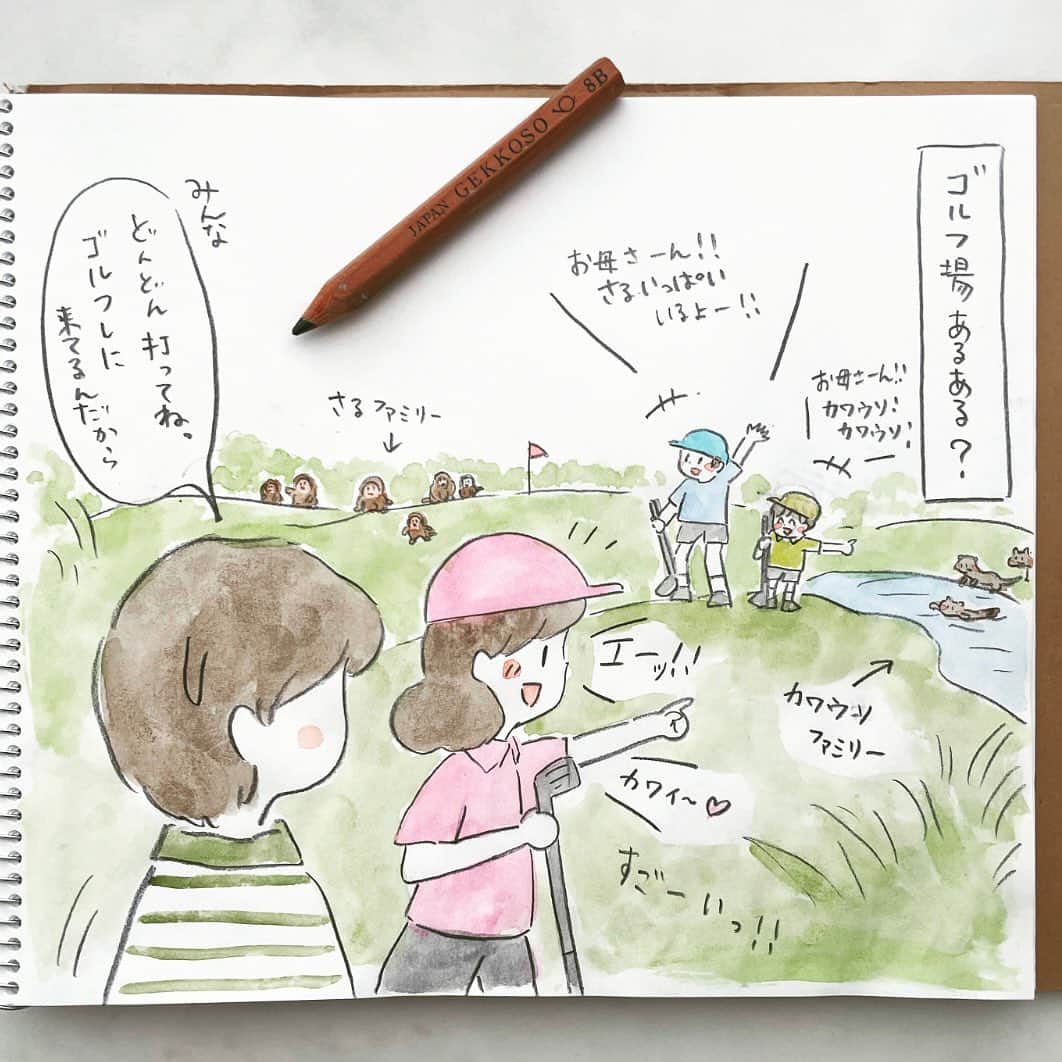 ゴルフ場あるある?
お母さーん!!
さるいっぱい
いるよー!!
お母さーん!!
カワウソ!
カワウソ!
JAPAN GEKKOSO 8B
さるファミリー
みんな
どんどん打ってね。
ゴルフしに
来てるんだから
エーッ!!
カワウソ
ファミリー
カワイ〜♡
すごーいっ!!